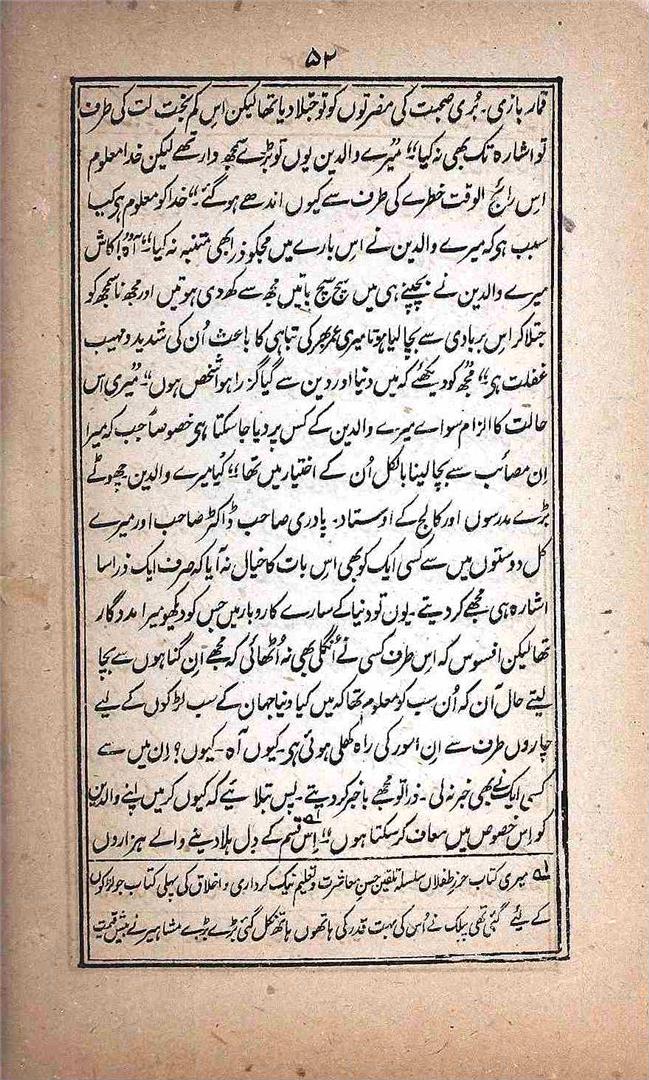 ۵۲
قمار بازی۔ بُری صحبت کی مضرتوں کو تو جتلا دیا تھا لیکن اس کم بخت لت کی طرف
تو اشارہ تک بھی نہ کیا“ ”میرے والدین یوں تو بڑے سمجھ دار تھے لیکن خدا معلوم
اس رائج الوقت خطرے کی طرف سے کیوں اندھے ہو گئے“ ”خدا کو معلوم ہی کیا
سبب ہو کہ میرے والدین نے اس بارے میں مجکو ذرا بھی متنبہ نہ کیا“ ”آہ! کاش
میرے والدین نے بچپنے ہی میں سچ سچ باتیں مجھ سے کھدی ہوتیں اور مجھ ناسمجھ کو
جتلا کر اس بربادی سے بچا لیا ہوتا میری عمر بھر کی تباہی کا باعث اُن کی شدید و مہیب
غفلت ہی“ ”مجھ کو دیکھئے کہ میں دنیا اور دین سے گیا گزرا ہوا شخص ہوں“ ”میری اس
حالت کا الزام سواے میرے والدین کے کس پر دیا جا سکتا ہی خصوصاً جب کہ میرا
ان مصائب سے بچا لینا بالکل اُن کے اختیار میں تھا“ ”کیا میرے والدین چھوٹے
بڑے مدرسوں اور کالج کے اوستاد۔ پادری صاحب ڈاکٹر صاحب اور میرے
کل دوستوں میں سے کسی ایک کو بھی اس بات کا خیال نہ آیا کہ صرف ایک ذرا سا
اشارہ ہی مجھے کر دیتے۔ یوں تو دنیا کے سارے کاروبار میں جس کو دیکھو میرا مددگار
تھا لیکن افسوس کہ اس طرف کسی نے اُنگلی بھی نہ اُٹھائی کہ مجھے اِن گناہوں سے بچا
لیتے حال آن کہ اُن سب کو معلوم تھا کہ میں کیا دنیا جہان کے سب لڑکوں کے لیے
چاروں طرف سے اِن امور کی راہ کھلی ہوئی ہی۔ کیوں آہ۔ کیوں؟ اِن میں سے
کسی ایک نے بھی خبر نہ لی۔ ذرا تو مجھے باخبر کر دیتے۔ پس بتلائیے کہ کیوں کر میں اپنے والدین
کو اس خصوص میں معاف کر سکتا ہوں“ اس قسم کے دل ہلا دینے والے ہزاروں
لہ میری کتاب حرز طفلاں سلسلہ تلقین حسن معاشرت و تعلیم نیک کرداری و اخلاق کی پہلی کتاب جو لڑکوں
کے لیئے لکھی گئی تھی پبلک نے اُس کی بہت قدر کی ہاتھوں ہاتھ نکل گئی بڑے بڑے مشاہیر نے بیش قیمت